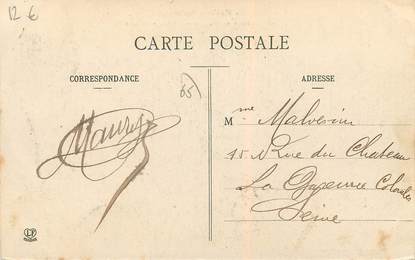 12 €
CARTE POSTALE
CORRESPONDANCE
ADRESSE
65
Mme Malvesin
15 Rue du Chateau
La Garenne Colombes
Seine